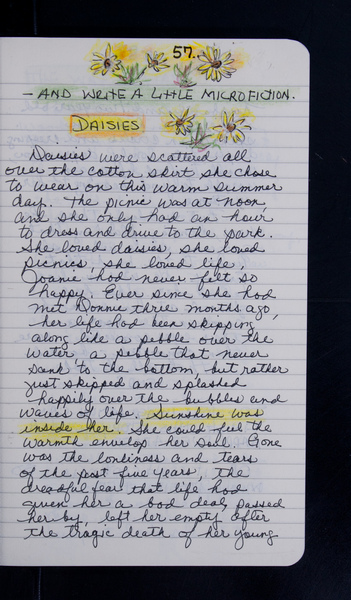 57.
- AND WRITE A LITTLE MICROFICTION.
DAISIES
Daisies were scattered all
over the cotton skirt she chose
to wear on this warm summer
day. The picnic was at noon
and she only had an hour
to dress and drive to the park.
She loved daisies, she loved
picnics, she loved life,
Joanie had never felt so
happy. Ever since she had
met Donnie three months ago,
her life had been skipping
along like a pebble over the
water a pebble that never
sank to the bottom, but rather
just skipped and splashed
happily over the bubbles and
waves of life. Sunshine was
inside her. She could feel the
warmth envelop her soul. Gone
was the lonliness and tears
of the past five years, the
dreadful fear that life had
given her a bad deal, passed
her by, left her empty after
the tragic death of her young